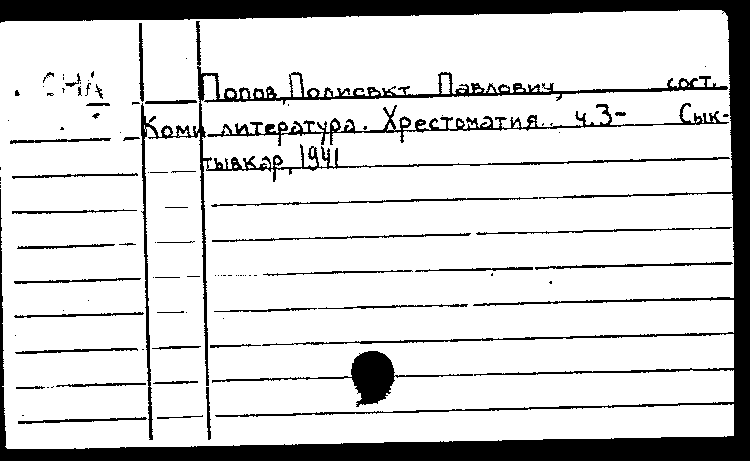 СНА
Попов, Полиевкт Павлович, сост.
Коми литература. Хрестоматия. ч.3- Сык-
тывкар, 1941